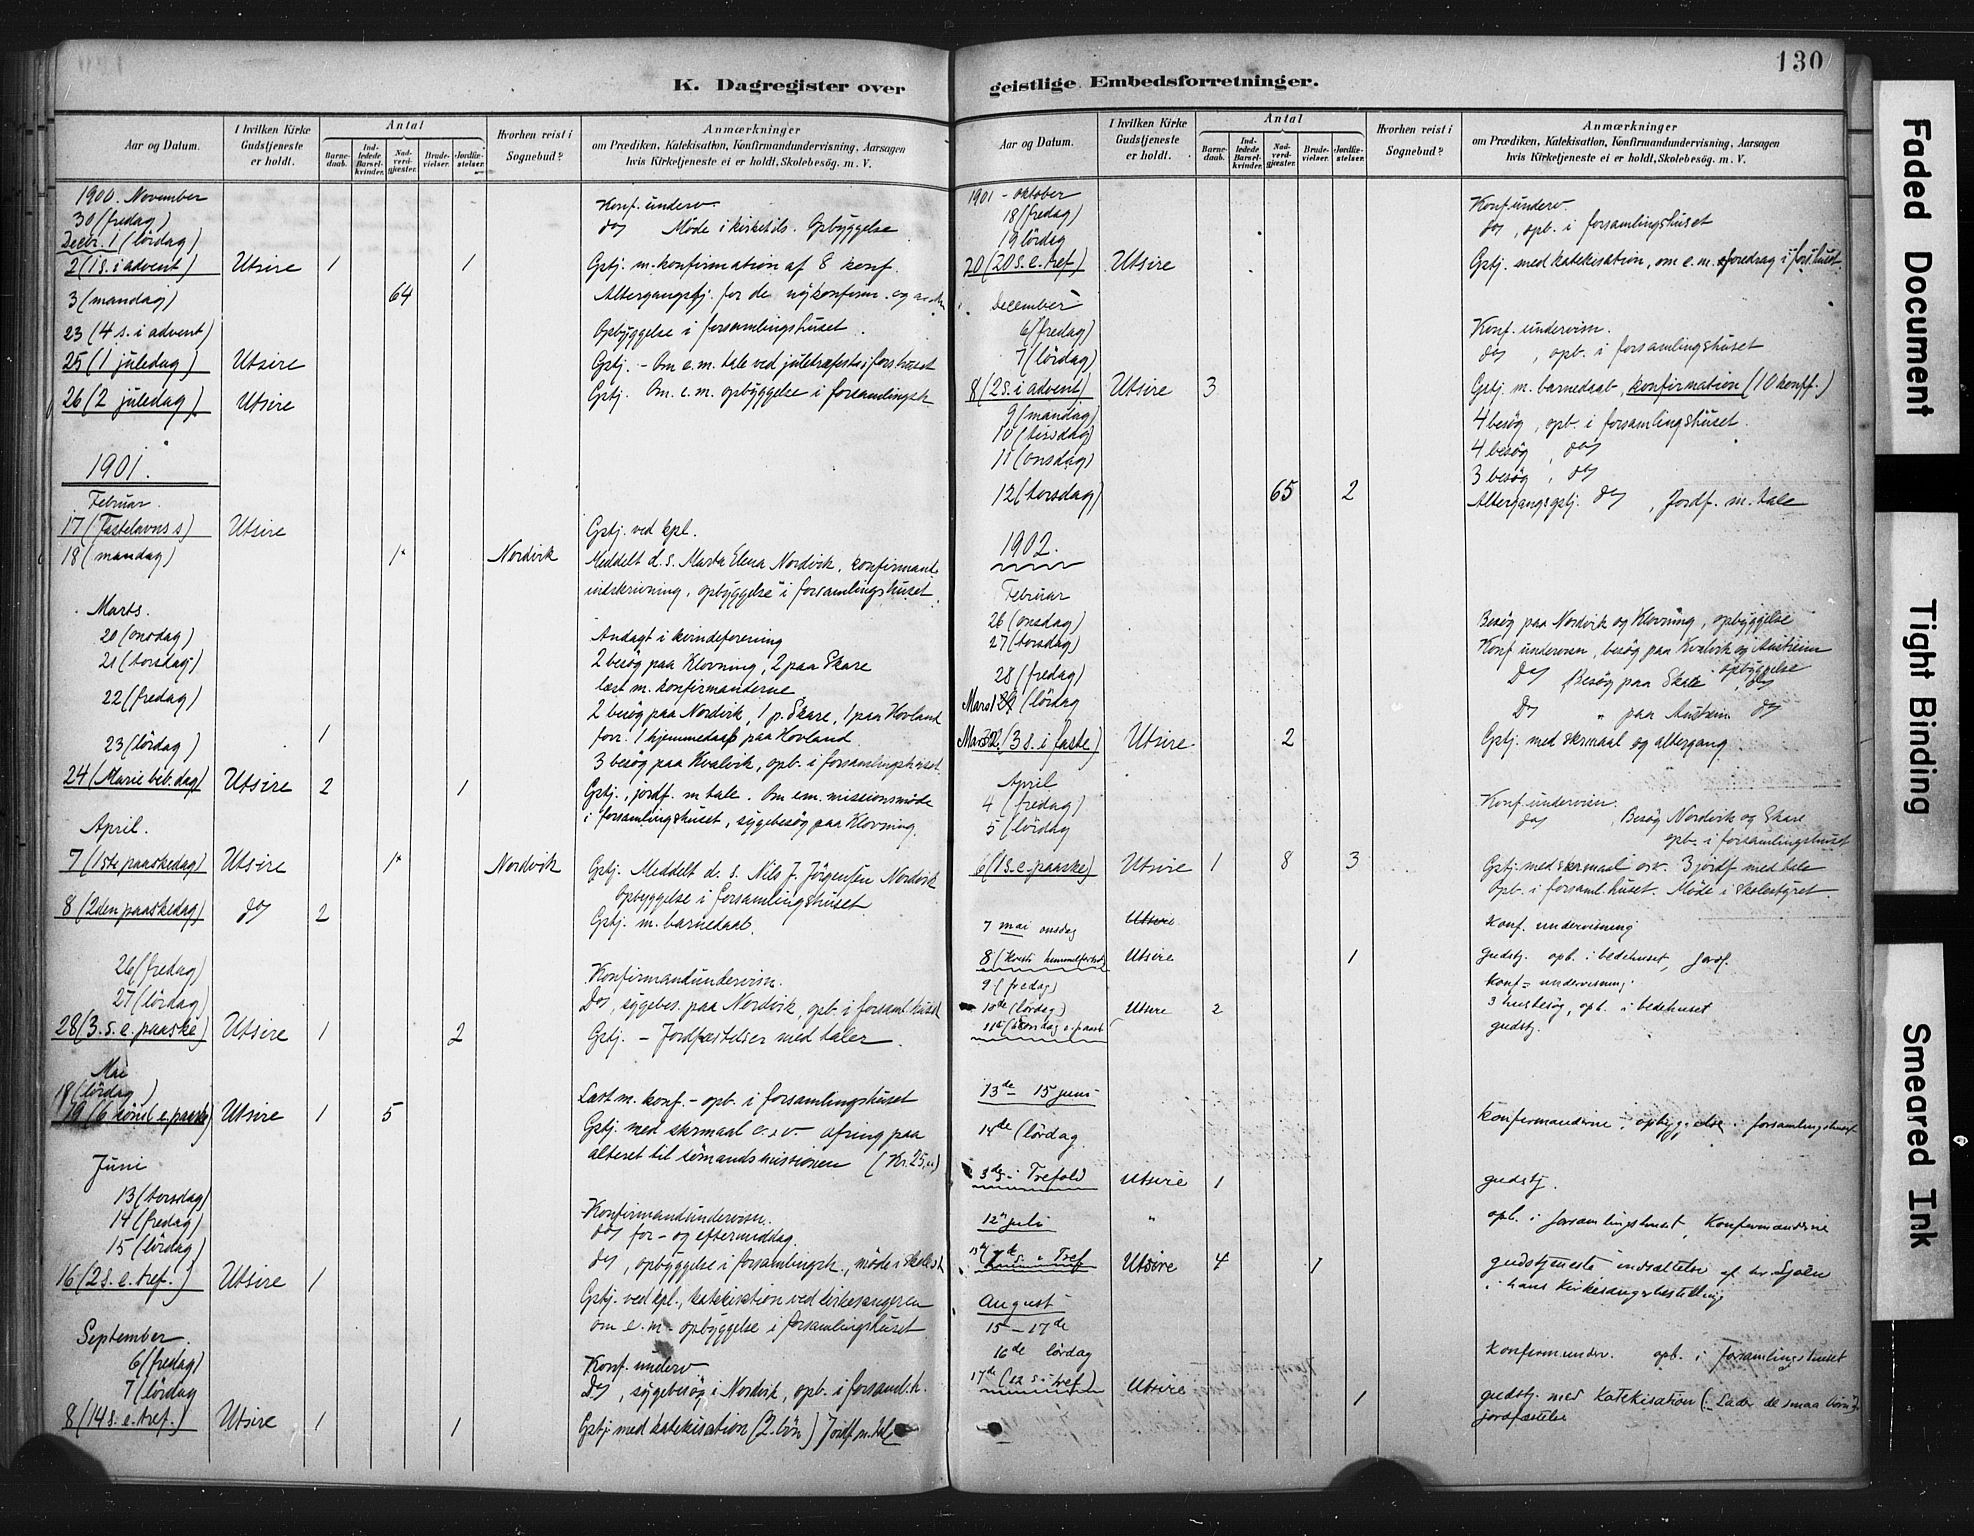 K. Dagregister over
Aar og Datum.
I hvilken Kirke Gudstjeneste er holdt.
Antal
Barnedaab.
Indledede Barselkvinder.
Nadverdgjæster.
Brudevielser.
Jordfæstelser.
Hvorhen reist i Sognebud?
Anmærkninger
om Prædiken, Katekisation, Konfirmandundervisning, Aarsagen
hvis Kirketjeneste ei er holdt, Skolebesög. m. V.
1900. November
30 (fredag) Konf. underv.
Decbr. 1 (lördag) do Möde i kirketils. Opbyggelse
2 (1 s. i advent) Utsire 1 1 Gstj. m. konfirmation af 8 konf.
3 (mandag) 64 Altergangstj. for de nykonfirm. og andre
23 (4 s. i advent) Opbyggelse i forsamlingshuset.
25 (1 juledag) Utsire Gstj. - Om e.m. tale ved juletræfest i forshuset
26 (2 juledag) Utsire Gstj. Om e.m. opbyggelse i forsamlingsh.
1901.
Februar.
17 (Fastelavns s) Utsire Gstj. ved kpl.
18 (mandag) 1* Nordvik Meddelt d. s. Marta Elena Nordvik, konfirmant
indskrivning, opbyggelse i forsamlingshuset.
Marts.
20 (onsdag) Andagt i kvindeforening
21 (torsdag) 2 besög paa Klovning, 2 paa Skare
læst m. konfirmanderne
22 (fredag) 2 besög paa Nordvik, 1 p. Skare, 1 paa Hovland
1 forr. 1 hjemmedaab paa Hovland
23 (lördag) 3 besög paa Kvalvik, opb. i forsamlingshuset.
24 (Marie beb. dag) Utsire 2 1 Gstj., jordf. m tale. Om em. missionsmöde
i forsamlingshuset, sygebesög paa Klovning.
April.
7 (1ste paaskedag) Utsire 1* Nordvik Gstj. Meddelt d. s. Nils J. Jörgensen Nordvik
Opbyggelse i forsamlingshuset
8 (2den paaskedag) do 2 Gstj. m. barnedaab.
26 (fredag) Konfirmandundervisn.
27 (lördag) Do, sygebes. paa Nordvik, opb. i forsaml.huset
28 (3. s. e. paaske) Utsire 1 2 Gstj. - Jordfæstelser med taler.
Mai
18 (lördag) Læst m. konf. - opb. i forsamlingshuset
19 (6 sönd e. paaske) Utsire 1 5 Gstj. med skrmaal o.s.v. ofring paa
alteret til sömandsmissionen (Kr. 25,00)
Juni
13 (torsdag) Konfirmandundervisn.
14 (fredag) do for- og eftermiddag.
15 (lördag) do, opbyggelse i forsamlingsh., möde i skolest
16 (2 s. e. tref.) Utsire 1 Gstj. ved kpl., katekisation ved kirkesangeren
om e. m. opbyggelse i forsamlingshuset
September.
6 (fredag) Konf. underv
7 (lördag Do, sygebesög i Nordvik, opb. i forsaml.h.
8 (14 s. e. tref.) Utsire 1 1 Gstj. med katekisation (2. bön) Jordf. m. tale
130
geistlige Embedsforretninger.
Aar og Datum.
I hvilken Kirke Gudstjeneste er holdt.
Antal
Barnedaab.
Indledede Barselkvinder.
Nadverdgjæster.
Brudevielser.
Jordfæstelser.
Hvorhen reist i Sognebud?
Anmærkninger
om Prædiken, Katekisation, Konfirmandundervisning, Aarsagen
hvis Kirketjeneste ei er holdt, Skolebesög. m. V.
1901 - Oktober
18 (fredag) Konf. underv.
19 lördag do, opb. i forsamlingshuset
20 (20 s. e. tref) Utsire Gstj. med katekisation, om e. m. foredrag i forshuset
December
6 (fredag) Konf. undervisn.
7 (lördag) do, opb. i forsamlingshuset
8 (2 s. i advent) Utsire 3 Gstj. m. barnedaab, konfirmation (10 konff.)
9 (mandag) 4 besög, opb. i forsamlingshuset.
10 (tirsdag) 4 besög, do
11 (onsdag) 3 besög, do
12 (torsdag) 65 2 Altergangsgstj. do, Jordf. m. tale
1902.
Februar
26 (onsdag) Besög paa Nordvik og Klovning, opbyggelse
27 (torsdag) Konf undervisn, besög paa Kvalvik og Austreim
opbyggelse
28 (fredag) Do Besög paa Skare do
Marst 1 (lördag Do " paa Austreim do
Marst 2. (3 s. i faste) Utsire 2 Gstj. med skrmaal og altergang
April
4 (fredag) Konf. undervisn.
5 (lördag do, Besög Nordvik og Skare
opb. i forsamlingshuset
6 (1 s. e. paaske) Utsire 1 8 3 Gstj. med skrmaal osv. 3 jordf med tale
Opb. i forsaml.huset. Möde i skolestyret.
7 mai onsdag Utsire Konf. undervisning
8 (Kristi himmelfartsd) Utsire 1 gudstj. opb. i bedehuset, jordf.
9 (fredag) konf = undervisning.
10de (lördag) Utsire 2 3 husbesög, opb. i bedehuset
11te (söndag e. paask gudstj.
13de - 15 juni
14de (lördag Konfirmanderne, opbyggelse i forsamlingshuset
3 s. i Trefold Utsire 1 gudstj.
12 juli " opb. i forsamlingshuset, Konfirmanderne
13/7 7de s. i Tref Utsire 4 1 gudstjeneste indsættelse af hr Sjöen
i hans Kirkesangerbestilling
August
15 - 17de
16de lördag Konfirm underv. opb. i forsamlingshuset
17de (12 s. i tref) Utsire 1 gudstj. med Katekisation (Lader de smaa börn
jordfæstelse
Faded Document
Tight Binding
Smeared Ink